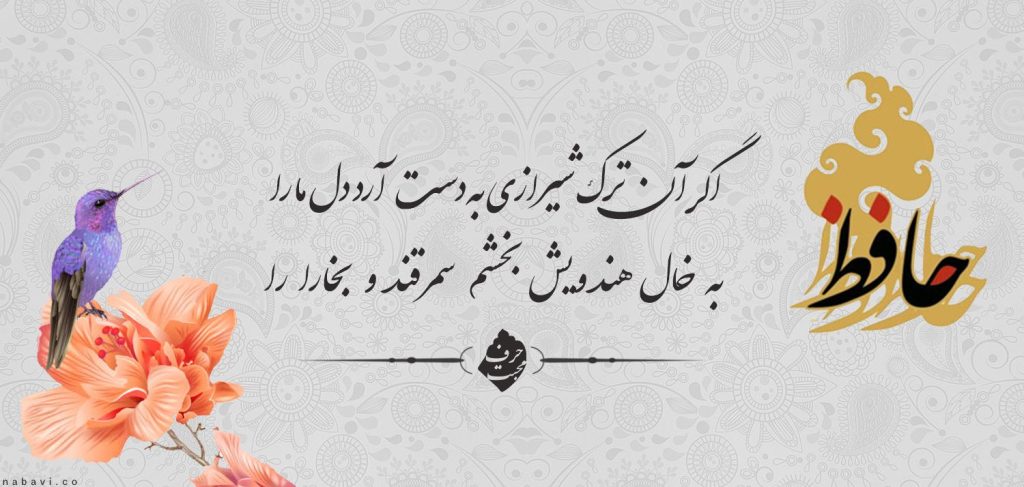 اگر آن ترک شیرازی به دست آرد دل ما را
به خال هندویش بخشم سمرقند و بخارا را
حرف
محبت
حافظ
nabavi.co